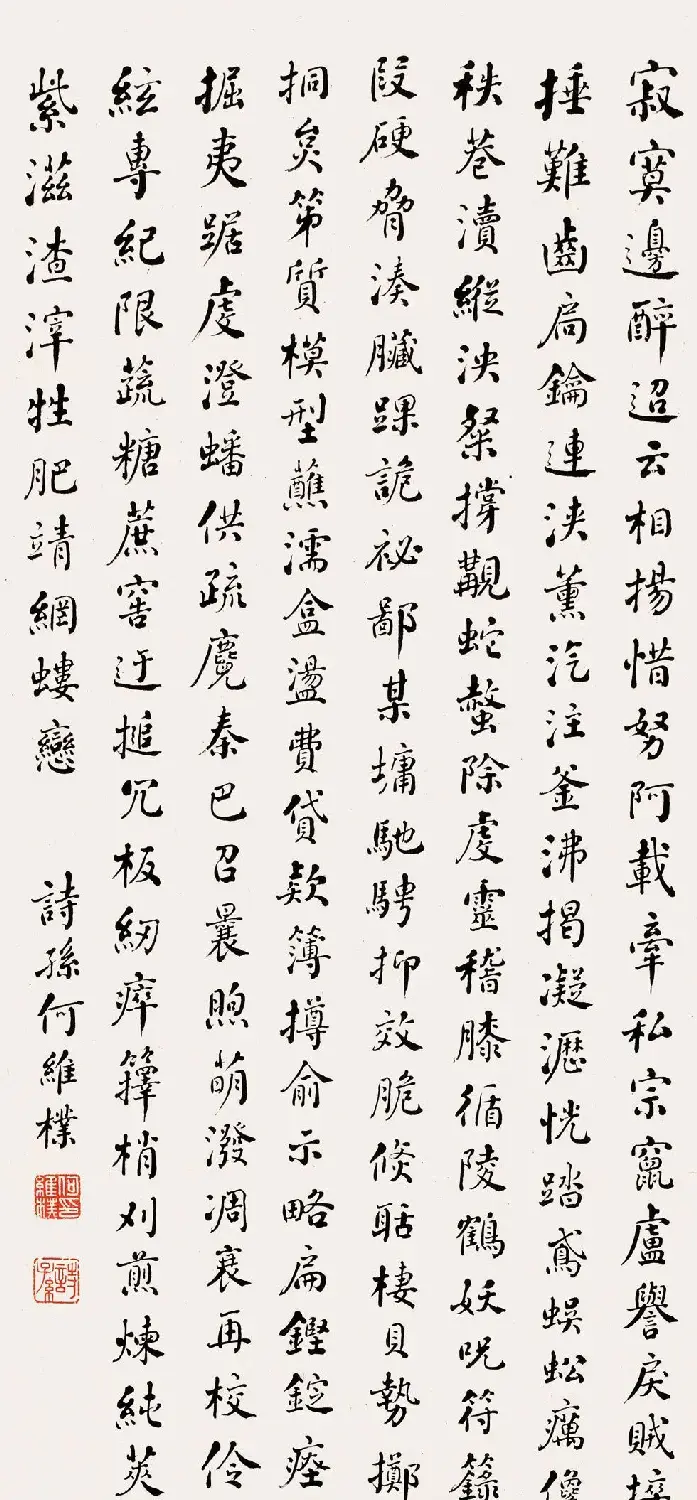 寂寞邊醉迢云相揚惜努阿載牽私宗竄盧譽戾賊
捶難齒扃鑰連泱薰汔注釜沸揭凝瀝恍踏鳶蜈蚣癘
秩巷瀆縱泱粲撐覯蛇螫除虔靈稽膝循陵鶴妖呪符籙
段硬脅湊臟踝詭祕鄙某墉馳騁抑效脆倏聒棲貝勢擲
挏炱第質模型蘸濡盒盪費貸款簿撙俞示略扁鏗錠瘞
掘夷踞虔澄蟠供疏麑秦巴召曩煦萌潑凋衰再校伶
紘專紀限蔬糖蔗窖迂搥冗板紉瘁籜梢刈煎煉純莢
紫滋渣滓牲肥靖網螻戀
詩孫何維樸
何維樸印
詩孫